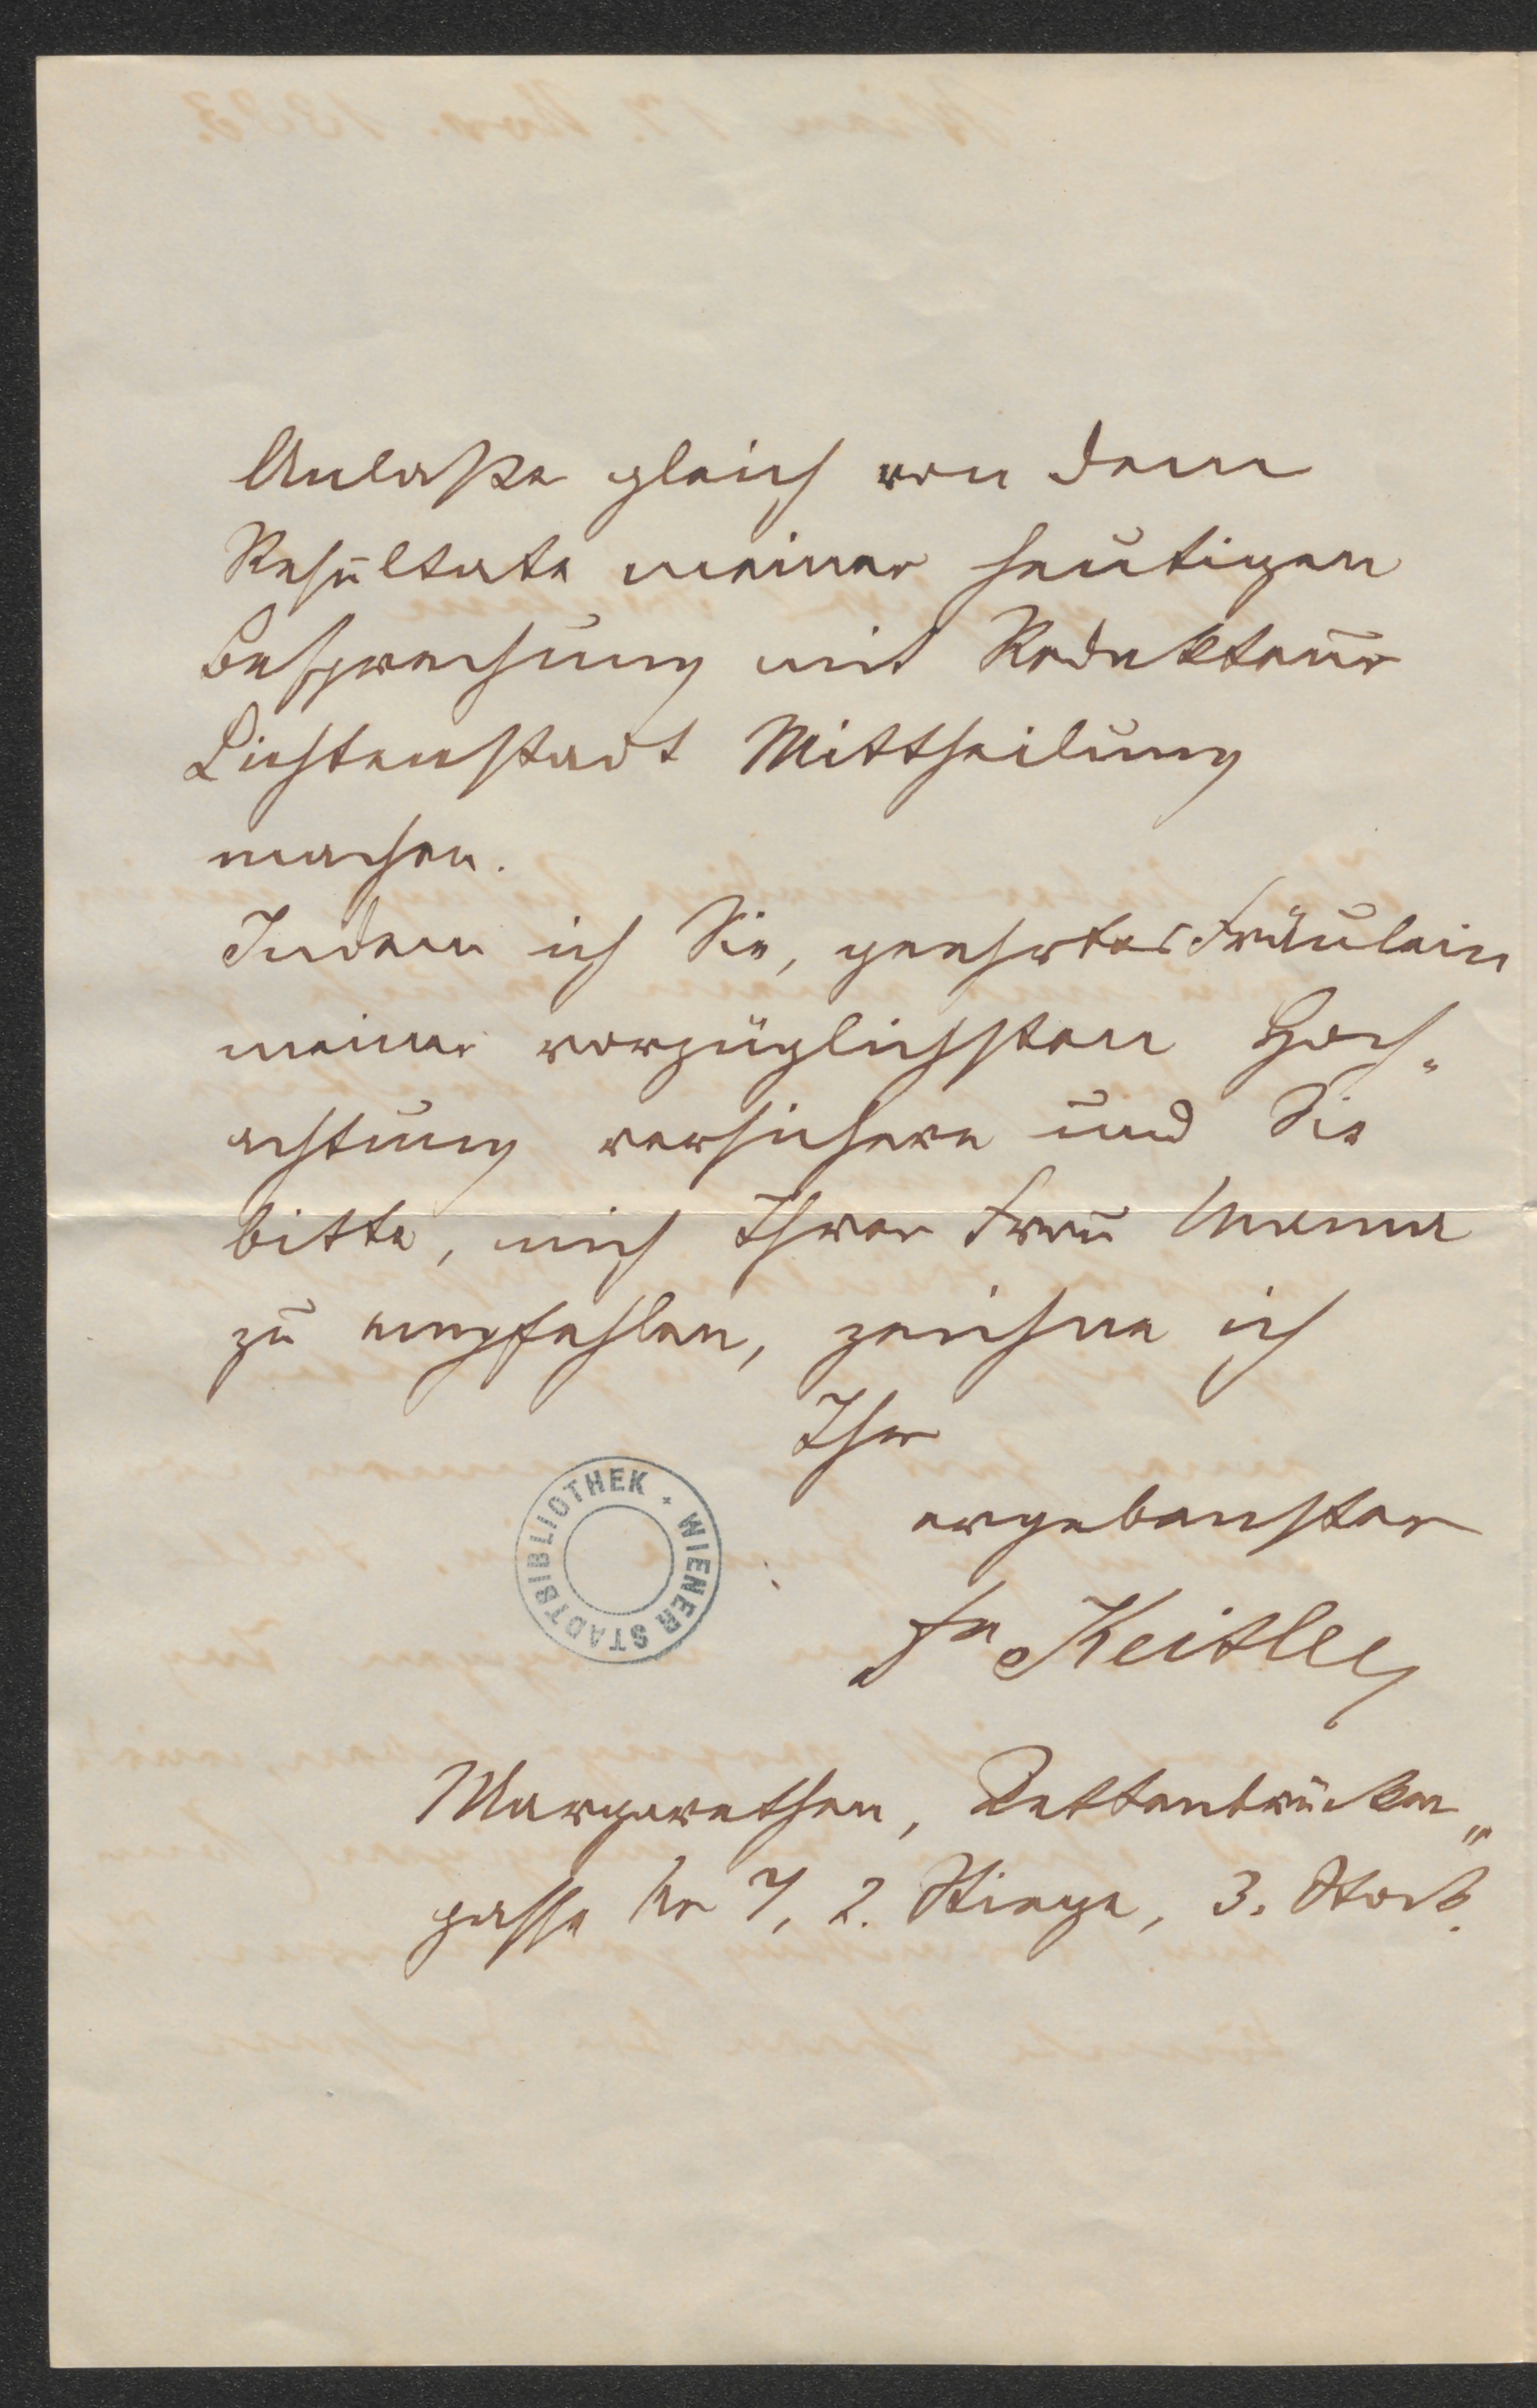 Anlaße gleich von dem
Resultate meiner heutigen
Besprechung mit Redakteur
Lichtenstadt Mittheilung
machen.
Indem ich Sie, geehrtes Fräulein
meiner vorzüglichsten Hoch-
achtung versichere und Sie
bitte, mich Ihrer Frau Mama
zu empfehlen, zeichne ich
Ihr
ergebenster
Fr Keitley
BIBLIOTHEK * WIENER STADT
Margarethen, Kettenbrücken-
gasse Nr 7, 2. Stiege, 3. Stock.